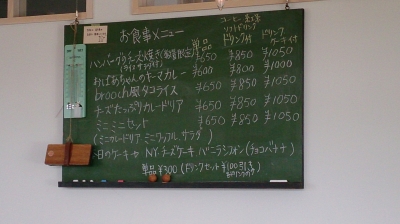 お食事メニュー
コーヒー 紅茶
ソフトドリンク
単品 ドリンク付 ドリンク ケーキ付
ハンバーグの ¥650 ¥850 ¥1050
おばあちゃんのキーマカレー ¥600 ¥800 ¥1000
brooch風タコライス ¥650 ¥850 ¥1050
チーズたっぷりカレードリア ¥650 ¥850 ¥1050
ミニミニセット ¥650 ¥850 ¥1050
(ミニカレードリア、ミニワッフル、サラダ)
本日のケーキ NYチーズケーキ、バニラシフォン(チョコバナナ)
単品¥300 (ドリンクセット ¥100引き